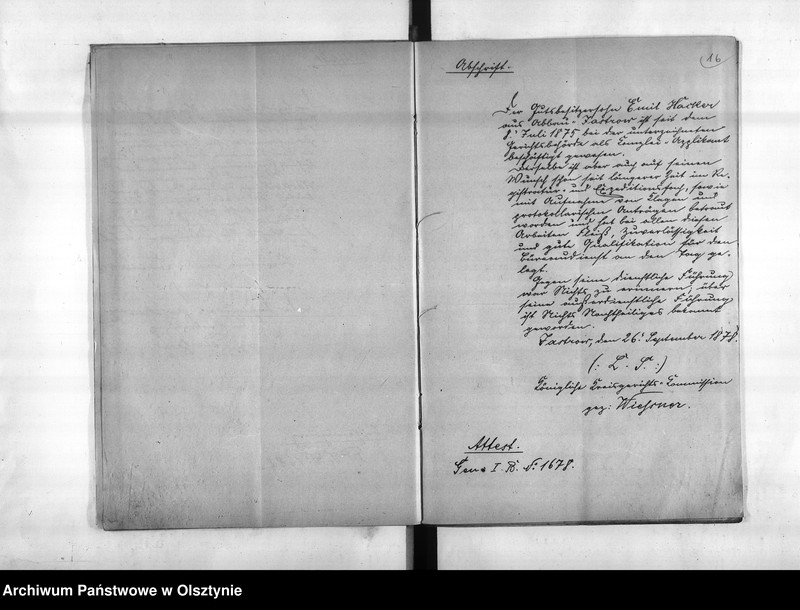 16
Abschrift.
Der Gutsbesitzersohn Emil Häcker
aus Abbau-Jastrow ist seit dem
8t Juli 1875 bei der unterzeichneten
Gerichtsbehörde als Canzlei-Applikant
beschäftigt gewesen.
Derselbe ist aber auch auf seinen
Wunsch schon seit längerer Zeit im Re-
gistratur- und Expeditionsfach, sowie
mit Aufnahme von Klagen und
protokollarischen Anträgen betraut
worden und hat bei allen diesen
Arbeiten Fleiß, Zuverlässigkeit
und gute Qualifikation für den
Büreaudienst an den Tag ge-
legt.
Gegen seine dienstliche Führung
war Nichts zu erinnern, über
seine außerdienstliche Führung
ist Nichts Nachtheiliges bekannt
geworden.
Jastrow, den 26t September 1878.
(: L. S. :)
Königliche Kreisgerichts-Commission
gez: Wiessner.
Attest.
I. R. No 1678.
Archiwum Państwowe w Olsztynie